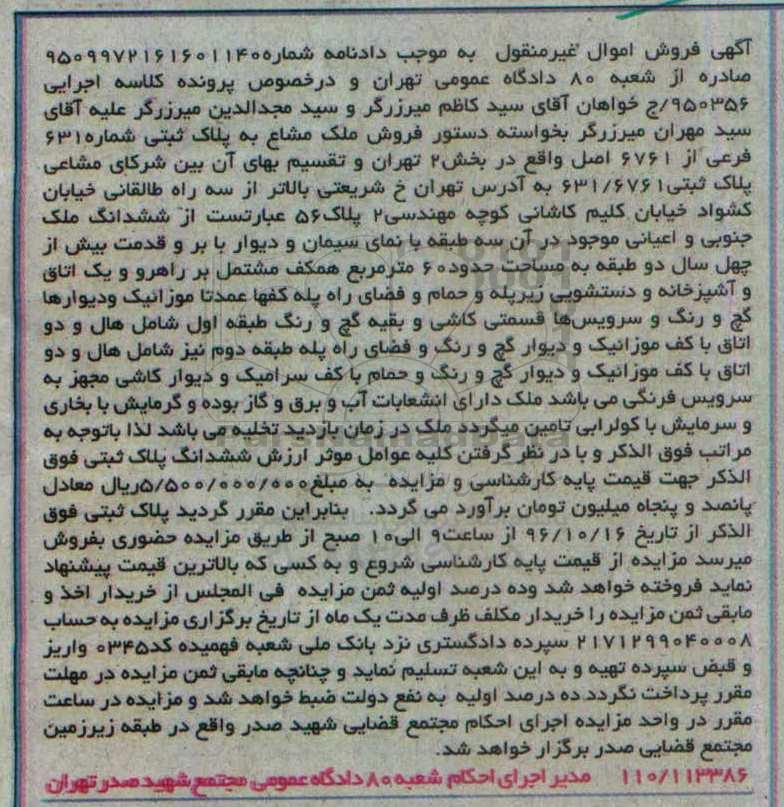 آگهی فروش اموال غیرمنقول به موجب دادنامه شماره۹۵۰۹۹۷۲۱۶۱۶۰۱۱۴۰
صادره از شعبه ۸۰ دادگاه عمومی تهران و درخصوص پرونده کلاسه اجرایی
۹۵۰۳۵۶/ج خواهان آقای سید کاظم میرزرگر و سید مجدالدین میرزرگر علیه آقای
سید مهران میرزرگر بخواسته دستور فروش ملک مشاع به پلاک ثبتی شماره۶۳۱
فرعی از ۶۷۶۱ اصل واقع در بخش۲ تهران و تقسیم بهای آن بین شرکای مشاعی
پلاک ثبتی۶۳۱/۶۷۶۱ به آدرس تهران خ شریعتی بالاتر از سه راه طالقانی خیابان
کشواد خیابان کلیم کاشانی کوچه مهندسی۲ پلاک۵۶ عبارتست از ششدانگ ملک
جنوبی و اعیانی موجود در آن سه طبقه با نمای سیمان و دیوار با بر و قدمت بیش از
چهل سال دو طبقه به مساحت حدود۶۰ مترمربع همکف مشتمل بر راهرو و یک اتاق
و آشپزخانه و دستشویی زیرپله و حمام و فضای راه پله کفها عمدتا موزائیک ودیوارها
گچ و رنگ و سرویس‌ها قسمتی کاشی و بقیه گچ و رنگ طبقه اول شامل هال و دو
اتاق با کف موزائیک و دیوار گچ و رنگ و فضای راه پله طبقه دوم نیز شامل هال و دو
اتاق با کف موزائیک و دیوار گچ و رنگ و حمام با کف سرامیک و دیوار کاشی مجهز به
سرویس فرنگی می باشد ملک دارای انشعابات آب و برق و گاز بوده و گرمایش با بخاری
و سرمایش با کولرابی تامین میگردد ملک در زمان بازدید تخلیه می باشد لذا باتوجه به
مراتب فوق الذکر و با در نظر گرفتن کلیه عوامل موثر ارزش ششدانگ پلاک ثبتی فوق
الذکر جهت قیمت پایه کارشناسی و مزایده به مبلغ۵/۵۰۰/۰۰۰/۰۰۰ریال معادل
پانصد و پنجاه میلیون تومان برآورد می گردد. بنابراین مقرر گردید پلاک ثبتی فوق
الذکر از تاریخ ۹۶/۱۰/۱۶ از ساعت۹ الی۱۰ صبح از طریق مزایده حضوری بفروش
میرسد مزایده از قیمت پایه کارشناسی شروع و به کسی که بالاترین قیمت پیشنهاد
نماید فروخته خواهد شد وده درصد اولیه ثمن مزایده فی المجلس از خریدار اخذ و
مابقی ثمن مزایده را خریدار مکلف ظرف مدت یک ماه از تاریخ برگزاری مزایده به حساب
۲۱۷۱۲۹۹۰۴۰۰۰۸ سپرده دادگستری نزد بانک ملی شعبه فهمیده کد۰۳۴۵ واریز
و قبض سپرده تهیه و به این شعبه تسلیم نماید و چنانچه مابقی ثمن مزایده در مهلت
مقرر پرداخت نگردد ده درصد اولیه به نفع دولت ضبط خواهد شد و مزایده در ساعت
مقرر در واحد مزایده اجرای احکام مجتمع قضایی شهید صدر واقع در طبقه زیرزمین
مجتمع قضایی صدر برگزار خواهد شد.
۱۱۰/۱۱۳۳۸۶ مدیر اجرای احکام شعبه ۸۰ دادگاه عمومی مجتمع شهید صدر تهران